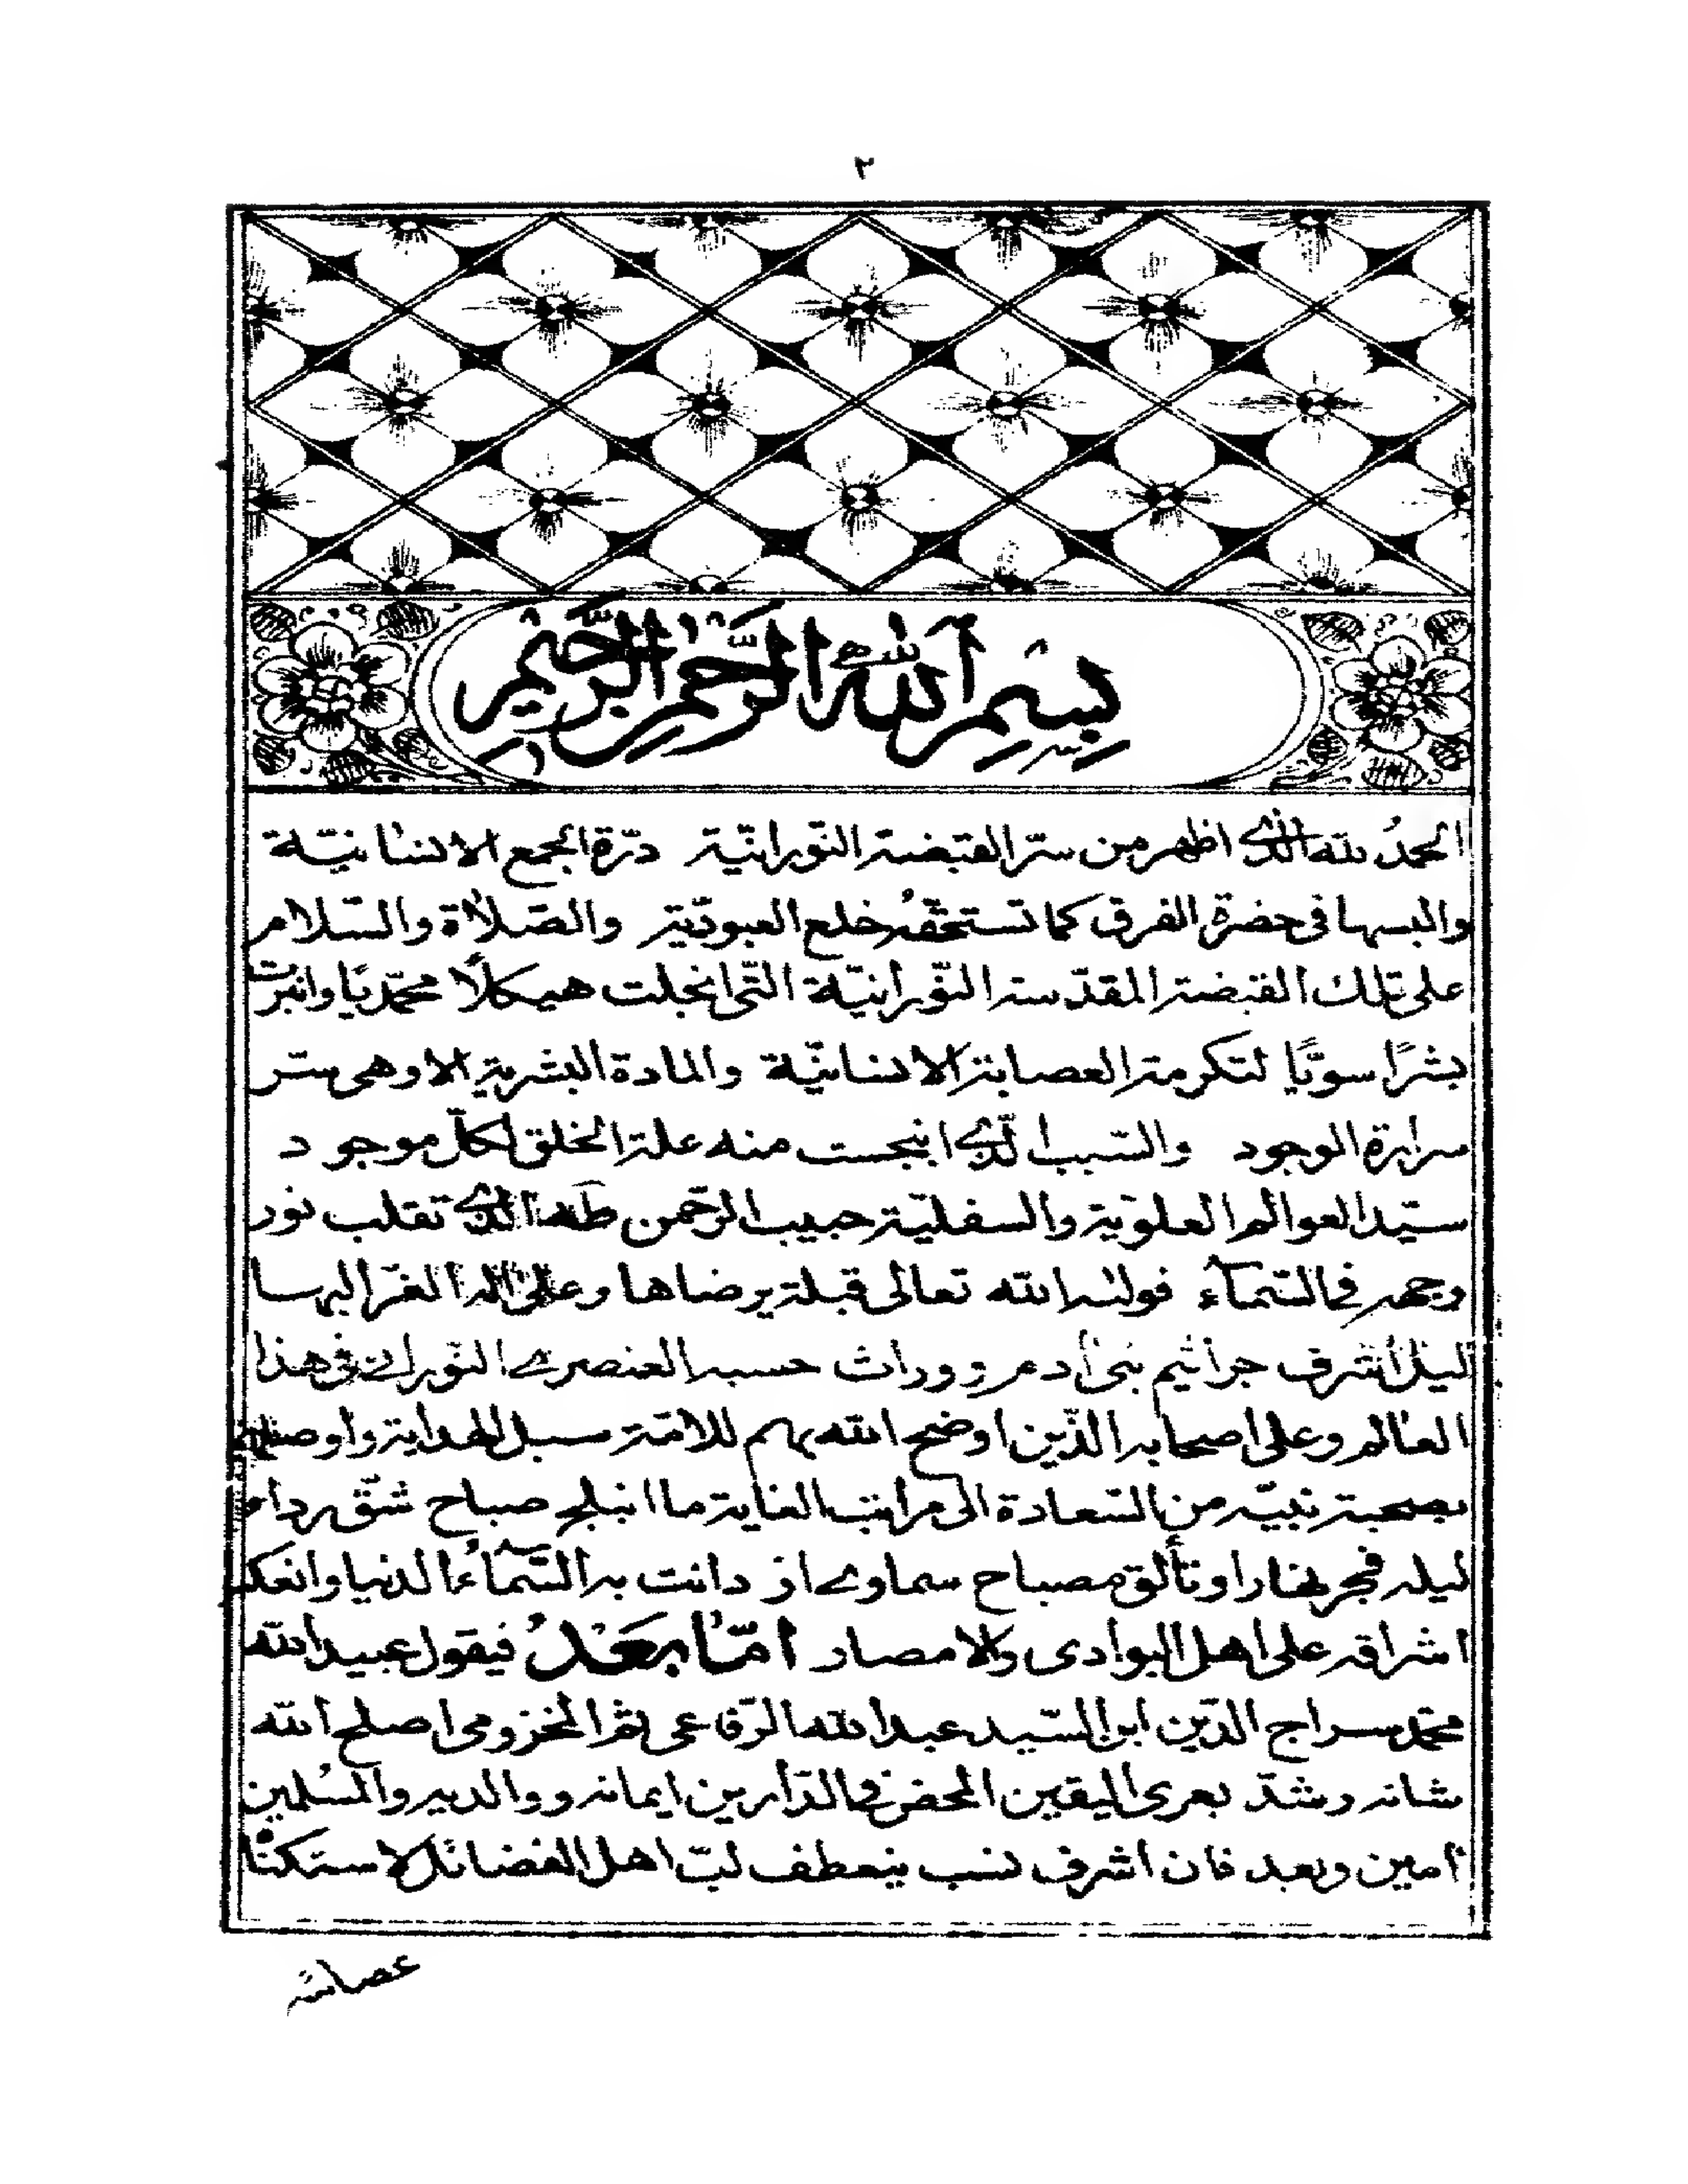 ٢
بسم الله الرحمن الرحيم
الحمدُ لله الذى اظهر من سرّ القبضة النّورانيّة درّة الجمع الانسانيّة
والبسها فى حضرة الفرق كما تستحقّهُ خلع العبوديّة والصّلاة والسّلام
على تلك القبضة المقدّسة النّورانيّة الّتى انجلت هيكلًا محمّديًا وانبرت
بشرًا سويًّا لتكرمة العصابة الانسانيّة والمادة البشرية الا وهى سرّ
سرايرة الوجود والسّبب الّذى انبجست منه علة الخلق لكلّ موجود
سيّد العوالم العلويّة والسفليّة حبيب الرّحمن طه الذى تقلب نور
وجهه فى السّمآء فولّه الله تعالى قبلة يرضاها وعلى اله الغرّ البهـا
ليل اشرف جراثيم بنى ادم و وراث حسبه العنصرى النّورانى فى هذا
العالم وعلى اصحابه الذّين اوضح الله بهم للامّة سبل الهداية واوصلهم
بصحبة نبيّه من السّعادة الى مراتب الغاية ما انبلج صباح شقّ رداء
ليله فجر نهار او تألق مصباح سماوى ازدانت به السّمآءُ الدنيا وانعكس
اشراقه على اهل البوادى والامصار امّا بعدُ فيقول عبيد الله
محمّد سراج الدّين ابن السّيد عبد الله الرّفاعى ثم المخزومى اصلح الله
شانه وشدّ بعرى اليقين المحض فى الدّارين ايمانه ووالديه والمسلمين
امين وبعد فان اشرف نسب ينعطف لبّ اهل الفضائل لاستكناه
عصابته